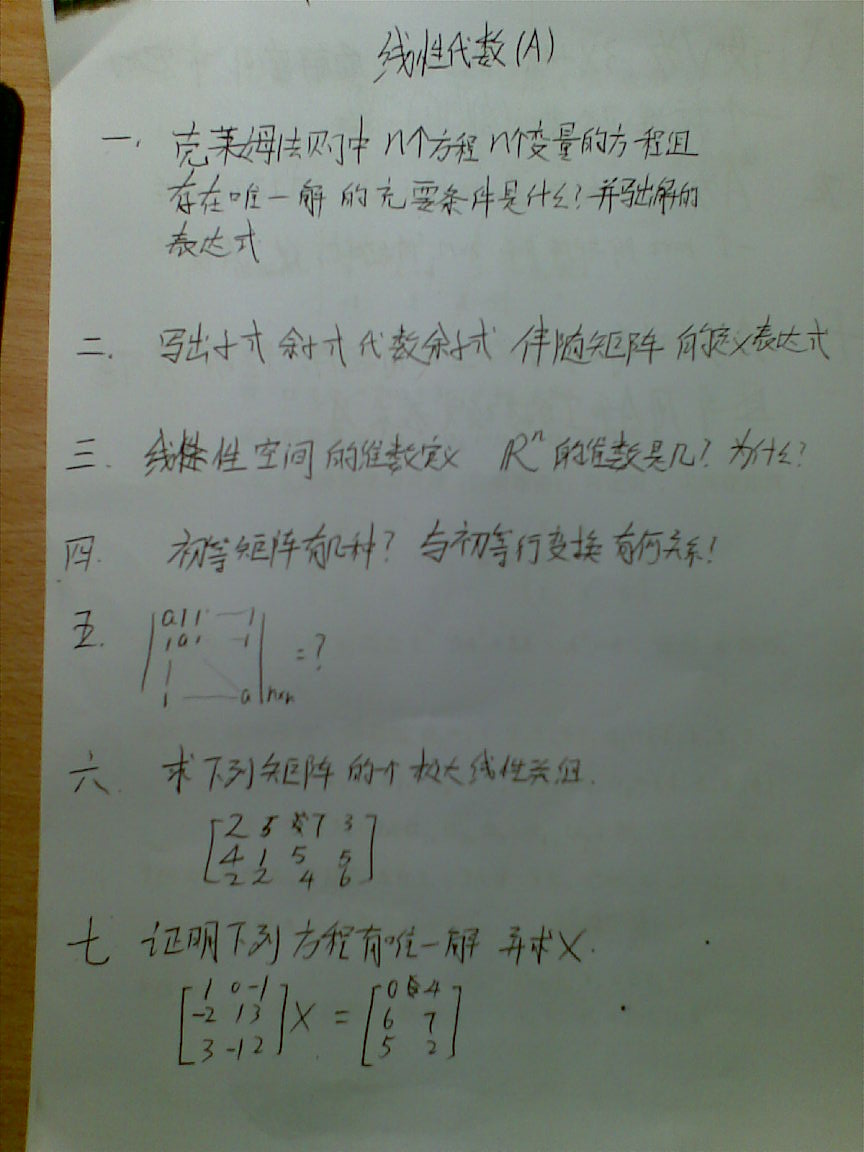 线性代数(A)
一. 克莱姆法则中 n个方程 n个变量的方程组
存在唯一解的充要条件是什么?并写出解的
表达式
二. 写出子式 余子式 代数余子式 伴随矩阵 的定义表达式
三. 线性空间的维数定义 Rⁿ的维数是几? 为什么?
四. 初等矩阵有几种? 与初等行变换有何关系!
五. a 1 1 — 1
1 a 1 — 1 = ?
1 — a n×n
六. 求下列矩阵的一个极大线性无关组.
2 5 7 3
4 1 5 5
2 2 4 6
七 证明下列方程有唯一解 并求X.
1 0 -1 0 4
-2 1 3 X = 6 7
3 -1 2 5 2